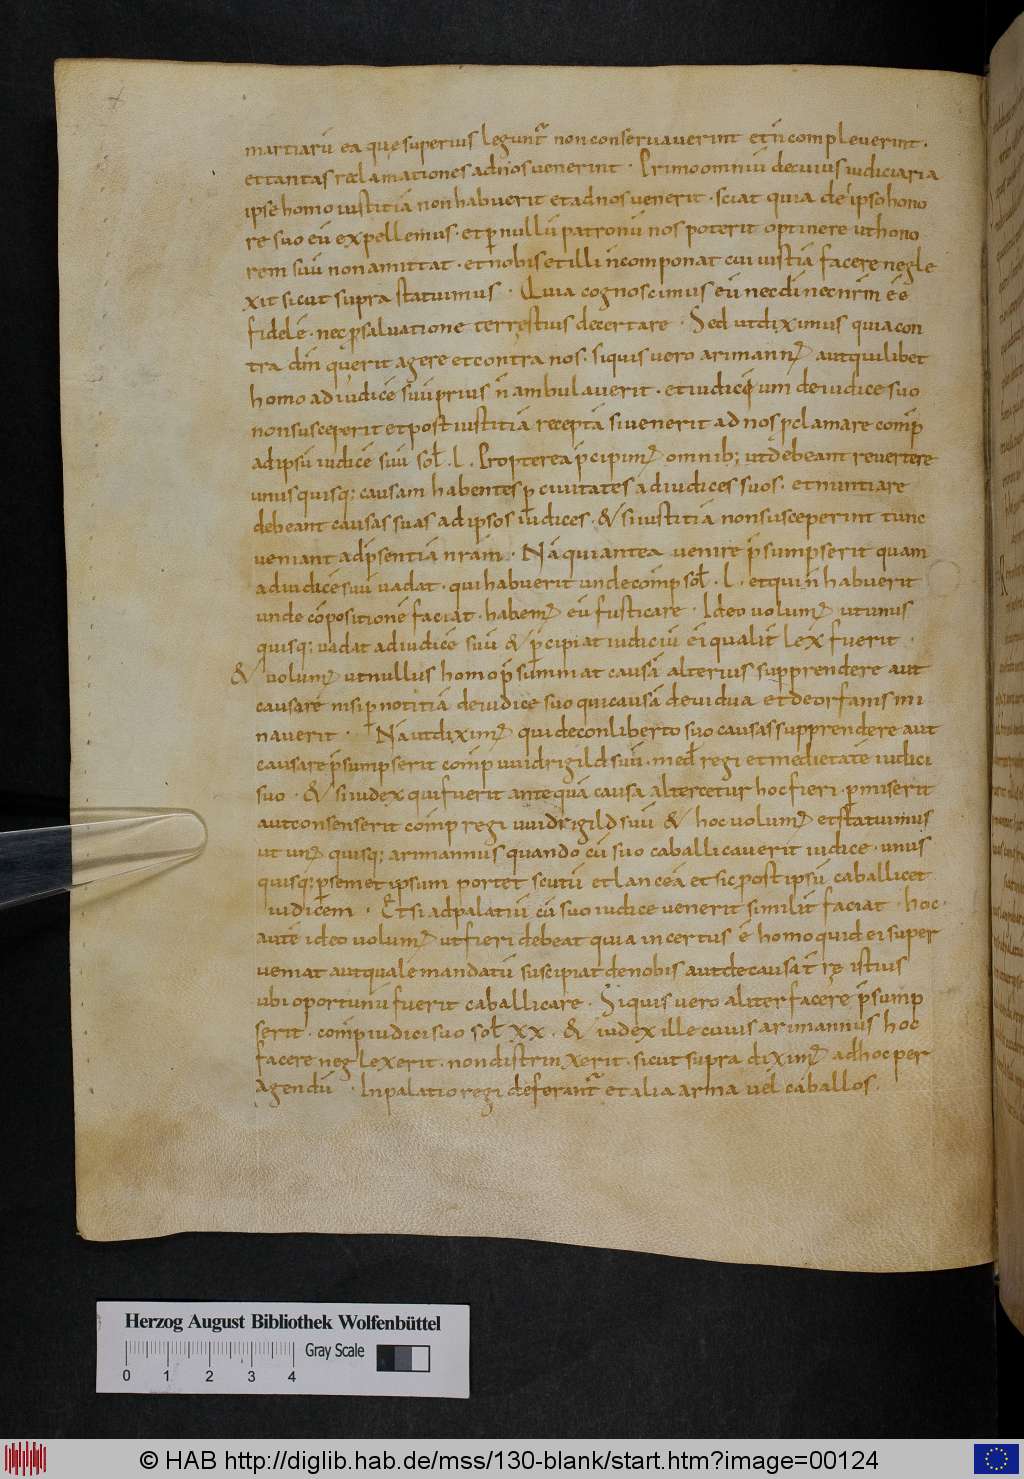 martiarū ea quę superius legunt̃ non conservaverint et ñ compleverint.
et tantas reclamationes ad nos venerint. Primo omniū de cuius iudiciaria
ipse homo iustitiā non habuerit et ad nos venerit. sciat quia de ipso hono
re suo eū expellemus. et ꝑ nullū patronū nos poterit optinere ut hono
rem suū non amittat. et nobis et illi ñ componat cui iustiā facere negle
xit sicut supra statuimus. Quia cognoscimus eū nec dī nec nr̄m eē
fidelē. nec ꝑ salvatione terrestius decertare. Sed ut diximus quia con
tra dm̄ querit agere et contra nos. si quis vero arimannꝰ aut quilibet
homo ad iudicē suū prius ñ ambulaverit. et iudiciūm de iudice suo
non susceperit et post iustitiā receptā si venerit ad nos ꝓclamare comp̄
ad ipsū iudicē suū sol̄. l. Propterea p̄cipimꝰ omnib; ut debeant revertere
unusquisq; causam habentes ꝑ civitates ad iudices suos. et nuntiare
debeant causas suas ad ipsos iudices. & si iustitiā non susceperint tunc
veniant ad p̄sentiā nr̄am. Nā qui antea venire p̄sumpserit quam
ad iudicē suū vadat. qui habuerit unde comp̄ sol̄. l. et qui ñ habuerit
unde cōpositionē faciat. habemꝰ eū fusticare. Ideo volumꝰ ut unus
quisq; vadat ad iudicē suū & p̄cipiat iudiciū ei qualit̄ lex fuerit.
& volumꝰ ut nullus homo p̄summat causā alterius supprendere aut
causare nisi ꝑ notitiā de iudice suo qui causā de vidua et de orfanis mi
naverit. Nā ut diximꝰ qui de conliberto suo causas supprendere aut
causare p̄sumpserit comp̄ uuidrigild suū. med̄ regi et medietatē iudici
suo. & si iudex qui fuerit ante quā causa altercetur hoc fieri ꝑmiserit
aut consenserit comp̄ regi uuidrigild suū & hoc volumꝰ et statuimus
ut unꝰ quisq; arimannus quando cū suo caballicaverit iudice. unus
quisq; ꝑ semet ipsum portet scutū et lanceā et sic post ipsū caballicet
iudicem. Et si ad palatiū cū suo iudice venerit similit̄ faciat. hoc.
autē ideo volumꝰ ut fieri debeat quia incertus ē homo quid ei super
veniat aut qualē mandatū suscipiat de nobis aut de causa t̄re istius
ubi oportunū fuerit caballicare. Si quis vero aliter facere p̄sump
serit. comp̄ iudici suo sol̄ xx. & iudex ille cuius arimannus hoc
facere neglexerit. non distrinxerit. sicut supra diximꝰ ad hoc per
agendū. In palatio regi deferant̃ et alia arma vel caballos.
Herzog August Bibliothek Wolfenbüttel
Gray Scale
0 1 2 3 4
© HAB http://diglib.hab.de/mss/130-blank/start.htm?image=00124